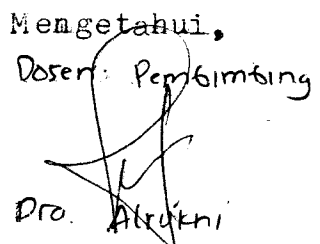 Mengetahui,
Dosen Pembimbing
Dra. Alrukni